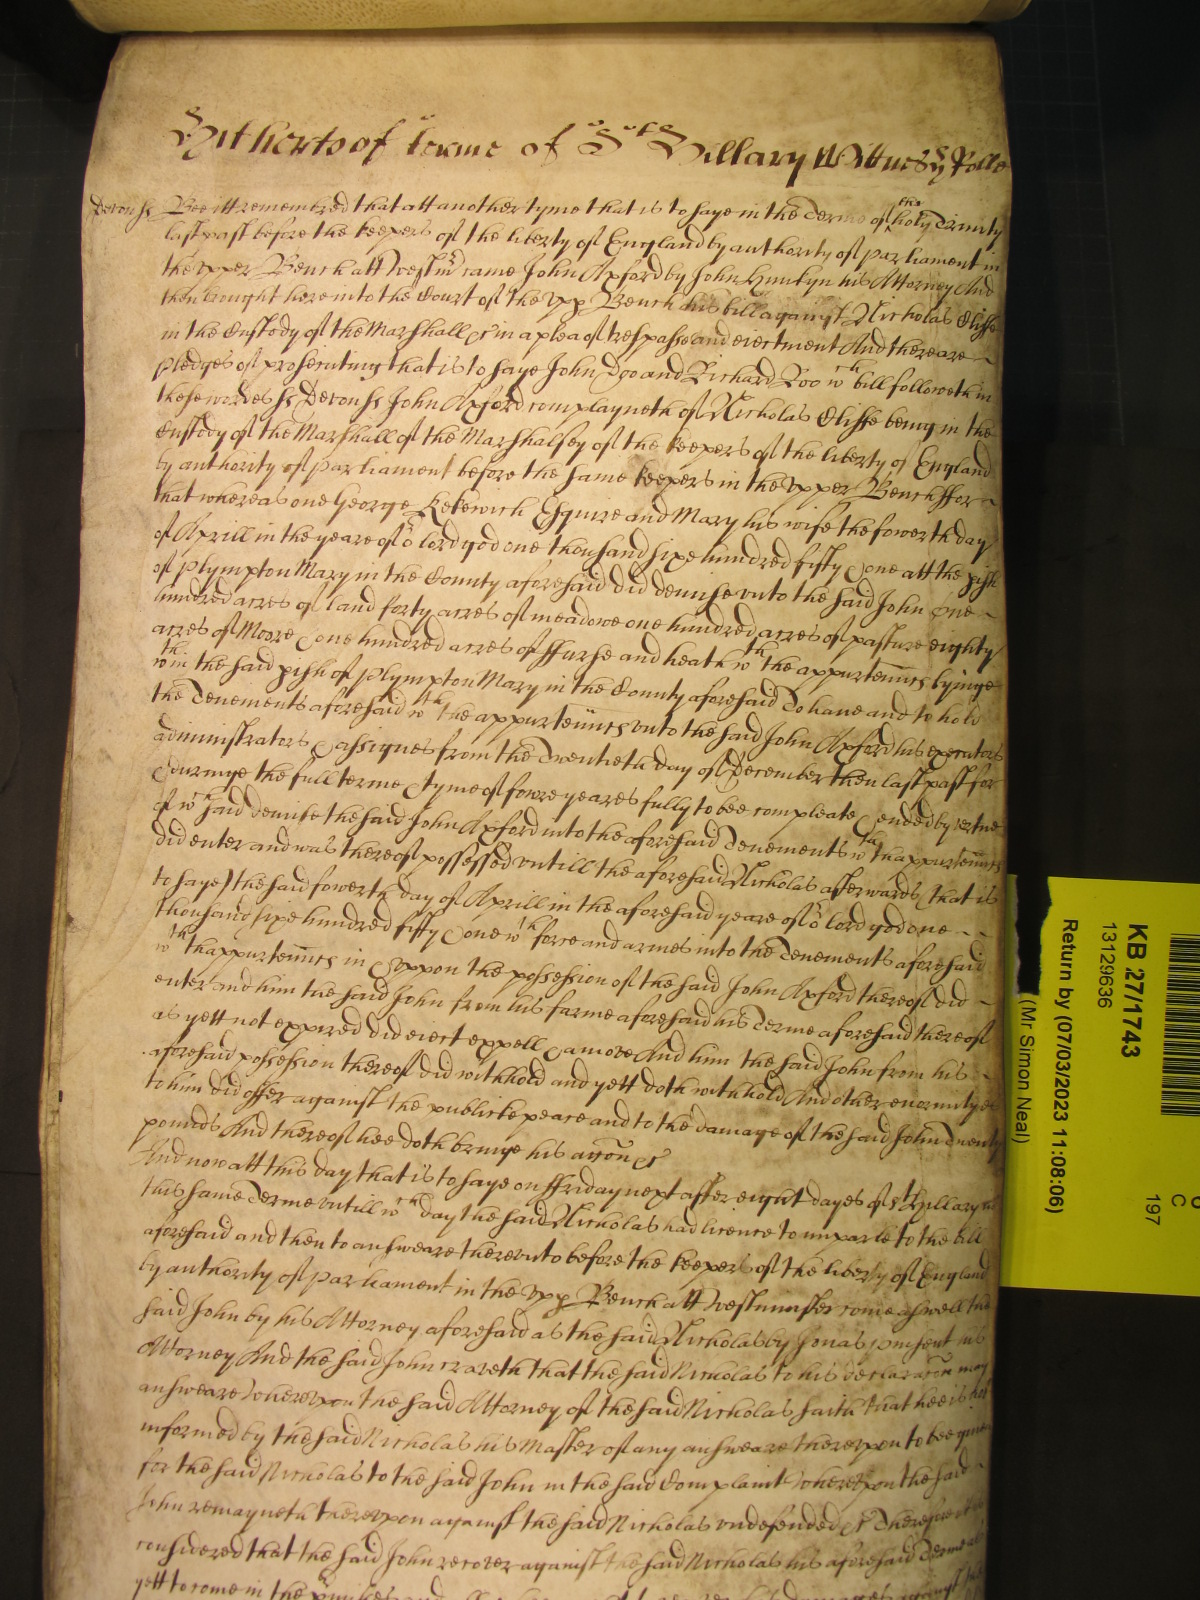 Hitherto of terme of St Hillary Wittnes Rolle
Devon ss Bee itt remembred that att another tyme that is to saye in the Terme of the holy Trinity
last past before the keepers of the liberty of England by authority of parliament in
the upper Bench att Westm came John Axford by John his Attorney And
then brought here into the Court of the upp Bench his bill against Nicholas Cliffe
in the Custody of the Marshall &c in a plea of trespasse and eiectment And there are
pledges of prosecuting that is to saye John Doo and Richard Roo wch bill followeth in
these wordes ss Devon ss John Axford complayneth of Nicholas Cliffe being in the
Custody of the Marshall of the Marshalsey of the keepers of the liberty of England
by authority of parliament before the same keepers in the upper Bench ffor
that whereas one George Kekewich Esquire and Mary his wife the fowerth day
of Aprill in the yeare of or lord god one thousand sixe hundred fifty & one att the pish
of Plympton Mary in the County aforesaid did demise unto the said John One
hundred acres of land forty acres of meadowe one hundred acres of pasture eighty
acres of Moore & one hundred acres of ffurse and heath wth the appurtennces lyinge
wthin the said pish of Plympton Mary in the County aforesaid To have and to hold
the Tenements aforesaid wth the appurtennces unto the said John Axford his executors
administrators & assignes from the Twentieth day of December then last past for
& duringe the full terme & tyme of fowre yeares fully to bee compleate & ended by vertue
of wch said demise the said John Axford into the aforesaid Tenements wth thappurtennces
did enter and was thereof possessed untill the aforesaid Nicholas afterwards (that is
to saye) the said fowerth day of Aprill in the aforesaid yeare of or lord god one
thousand sixe hundred fifty & one wth force and armes into the Tenements aforesaid
wth thappurtennces in & uppon the possession of the said John Axford thereof did
enter and him the said John from his farme aforesaid his Terme aforesaid thereof
as yett not expired did eiect expell & amove And him the said John from his
aforesaid possession thereof did withhold and yett doth withhold And other enormityes
to him did offer against the publicke peace and to the damage of the said John Twenty
pounds And thereof hee doth bringe his accon &c
And now att this day that is to saye on ffriday next after eight dayes of St Hillary in
this same Terme untill wch day the said Nicholas had licence to imparle to the bill
aforesaid and then to answeare thereunto before the keepers of the liberty of England
by authority of parliament in the upp Bench att Westminster come aswell the
said John by his Attorney aforesaid as the said Nicholas by Jonas his
Attorney And the said John craveth that the said Nicholas to his declaracon may
answeare Whereupon the said Attorney of the said Nicholas saith that hee is not
informed by the said Nicholas his Master of any answeare thereupon to bee given
for the said Nicholas to the said John in the said Complaint Whereupon the said
John remayneth thereupon against the said Nicholas undefended &c Therefore it is
considered that the said John recover against the said Nicholas his aforesaid Terme as
yett to come in the
KB 27/1743
13129636
Return by (07/03/2023 11:08:06)
(Mr Simon Neal)
C
197